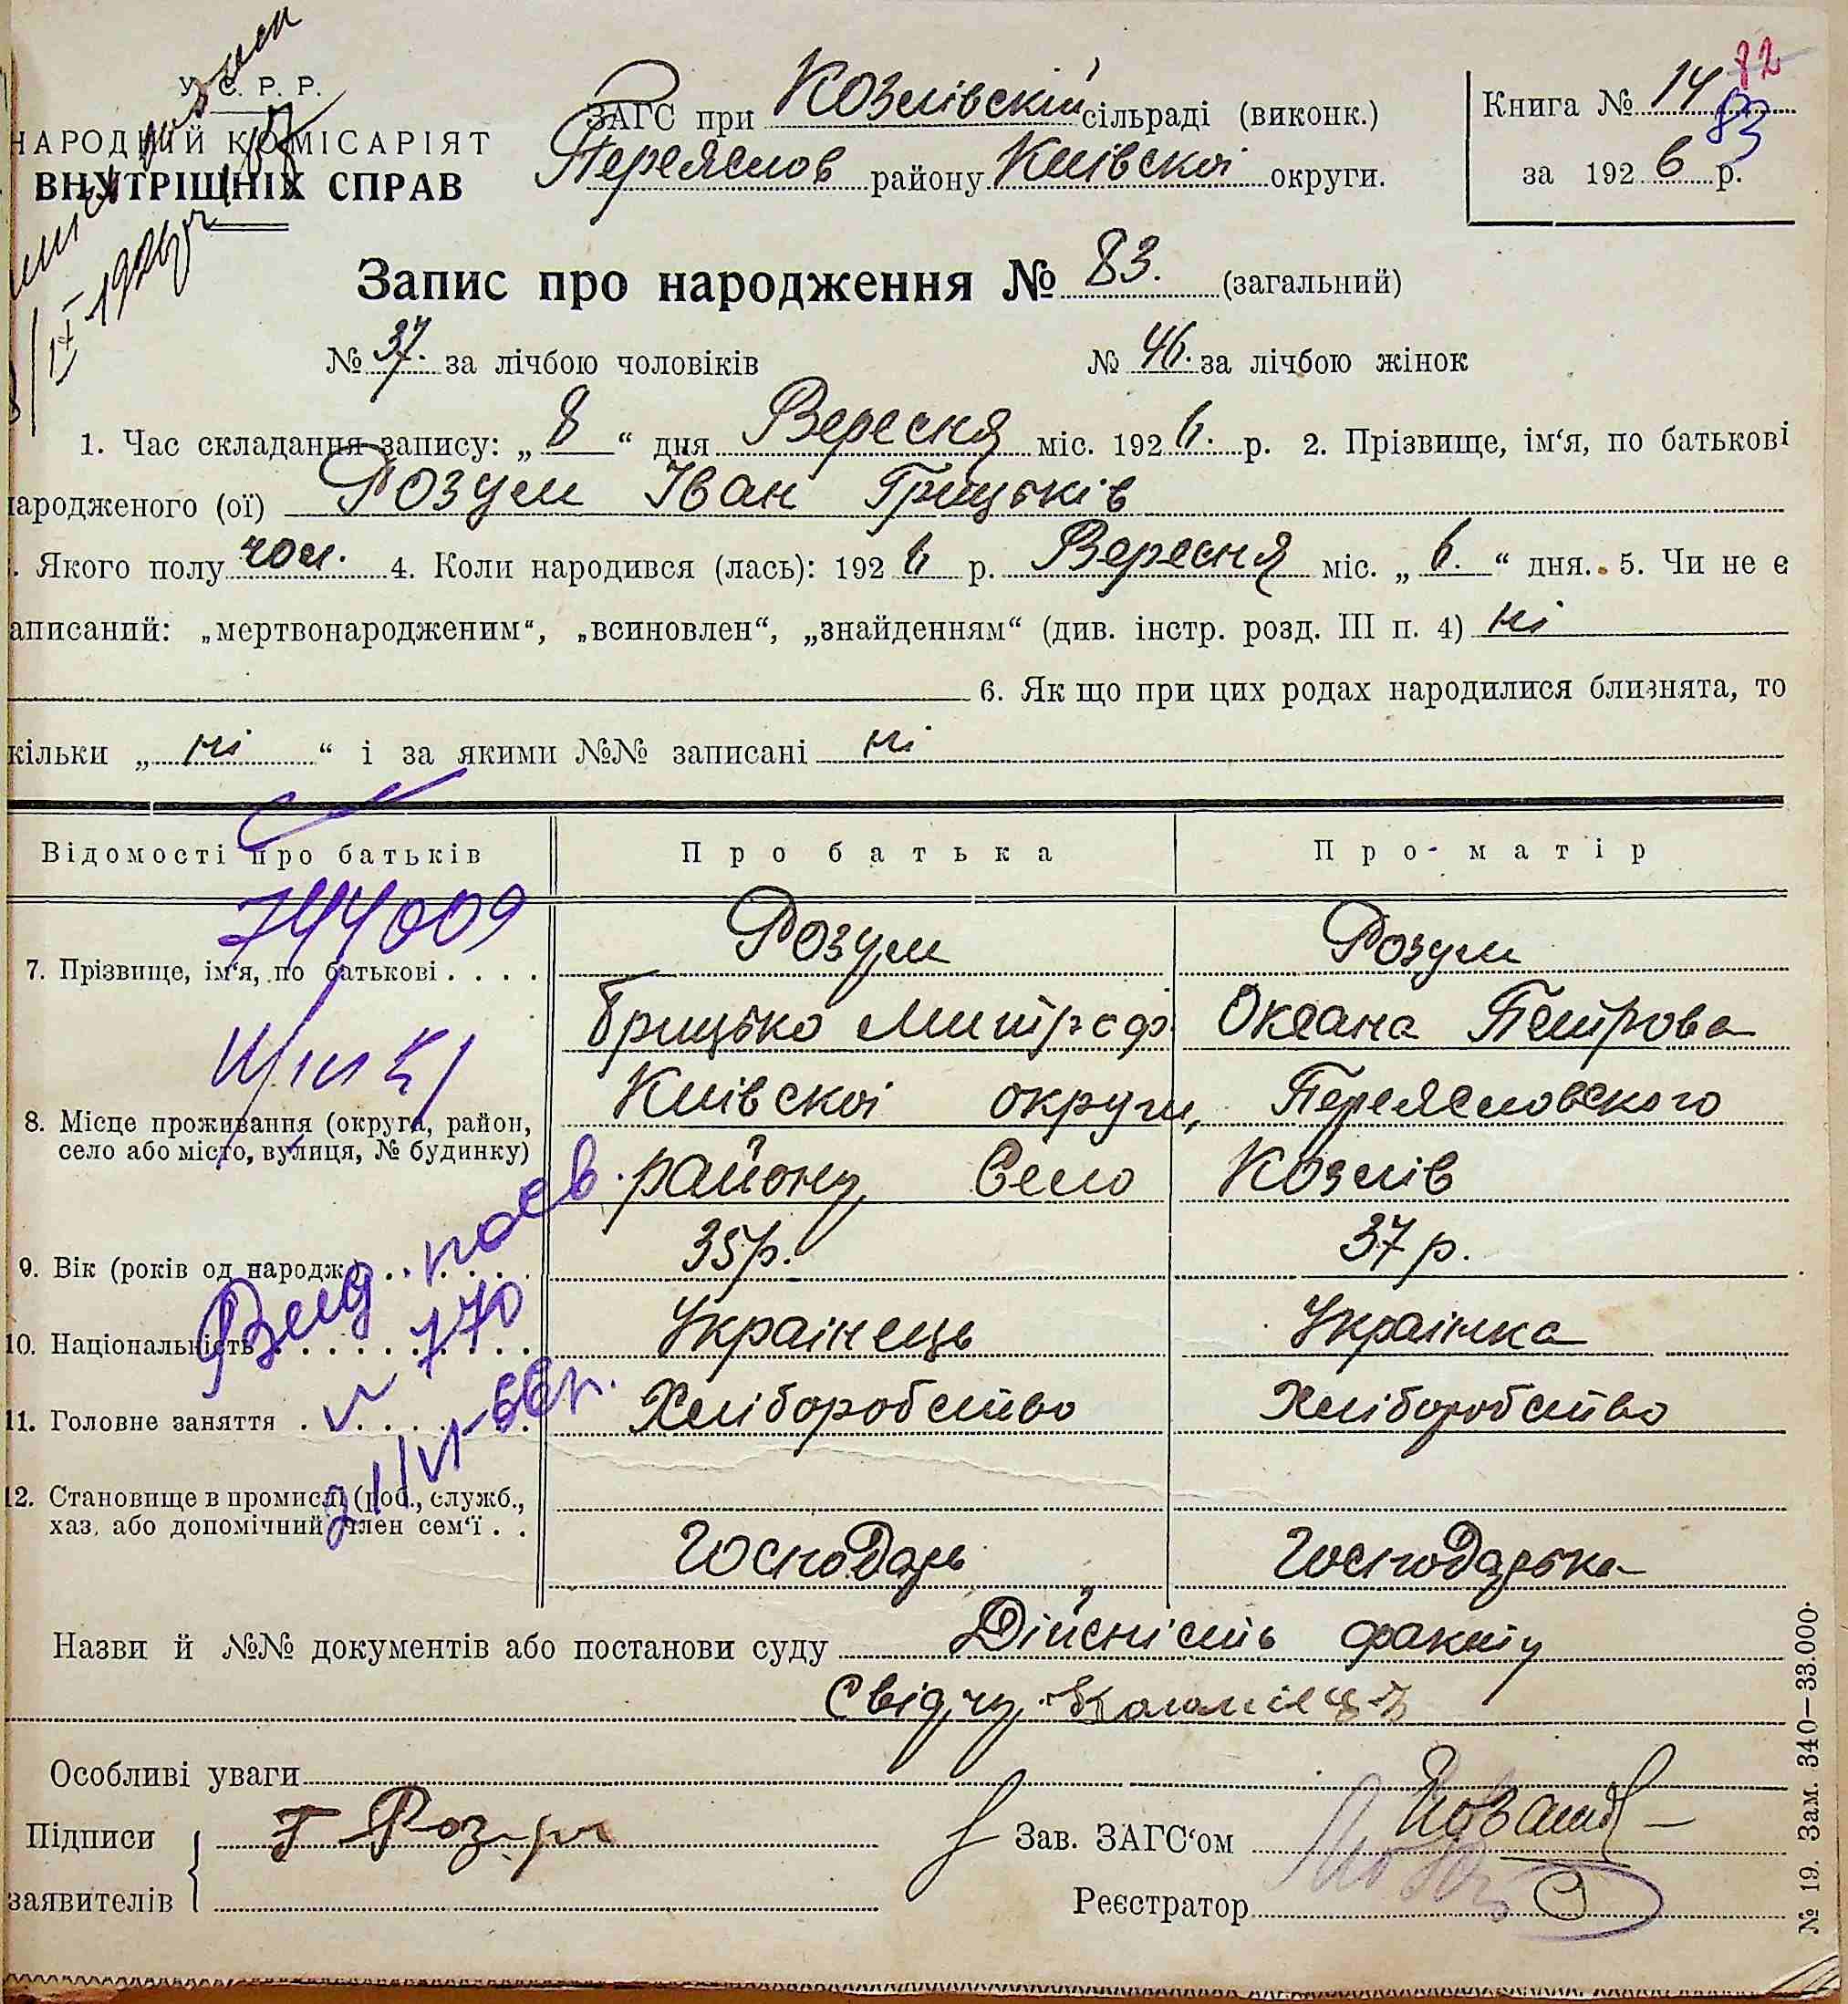 82
У. С. Р. Р.
НАРОДНІЙ КОМІСАРІЯТ
ВНУТРІШНІХ СПРАВ
ЗАГС при Козлівскій сільраді (виконк.)
Переяслов району Київскоі округи.
Книга № 14
83
за 1926 р.
1926 р
Запис про народження № 83. (загальний)
№ 37. за лічбою чоловіків № 46. за лічбою жінок
1. Час складання запису: „ 8 “ дня Вересня міс. 1926. р. 2. Прізвище, ім‘я, по батькові
народженого (ої) Розум Іван Грицьків
. Якого полу чол. 4. Коли народився (лась): 1926 р. Вересня міс. „ 6. “ дня. 5. Чи не є
аписаний: „мертвонародженим“, „всиновлен“, „знайденням“ (див. інстр. розд. III п. 4) ні
6. Як що при цих родах народилися близнята, то
кільки „ ні “ і за якими №№ записані ні
Відомості про батьків Про батька Про-матір
744009
7. Прізвище, ім‘я, по батькові . . . . Розум Розум
Грицько Митроф Оксана Петрова
8. Місце проживання (округа, район, Київскоі округи, Переясловского
село або місто, вулиця, № будинку) району Село Козлів
9. Вік (років од народж.) . . . 35 р. 37 р.
Вид. посв.
10. Національність . . . . Украінець Украінка
№ 170
11. Головне заняття . . . . Хліборобство Хліборобство
21/VI-66 р.
12. Становище в промислі (роб., служб.,
хаз. або допомічний член сем‘ї . . Господарь Господарька
Назви й №№ документів або постанови суду Дійсність факту
Свідчу
Особливі уваги
Підписи заявителів Г Розум
Зав. ЗАГС‘ом
Реєстратор
№ 19. Зам. 340—33.000.